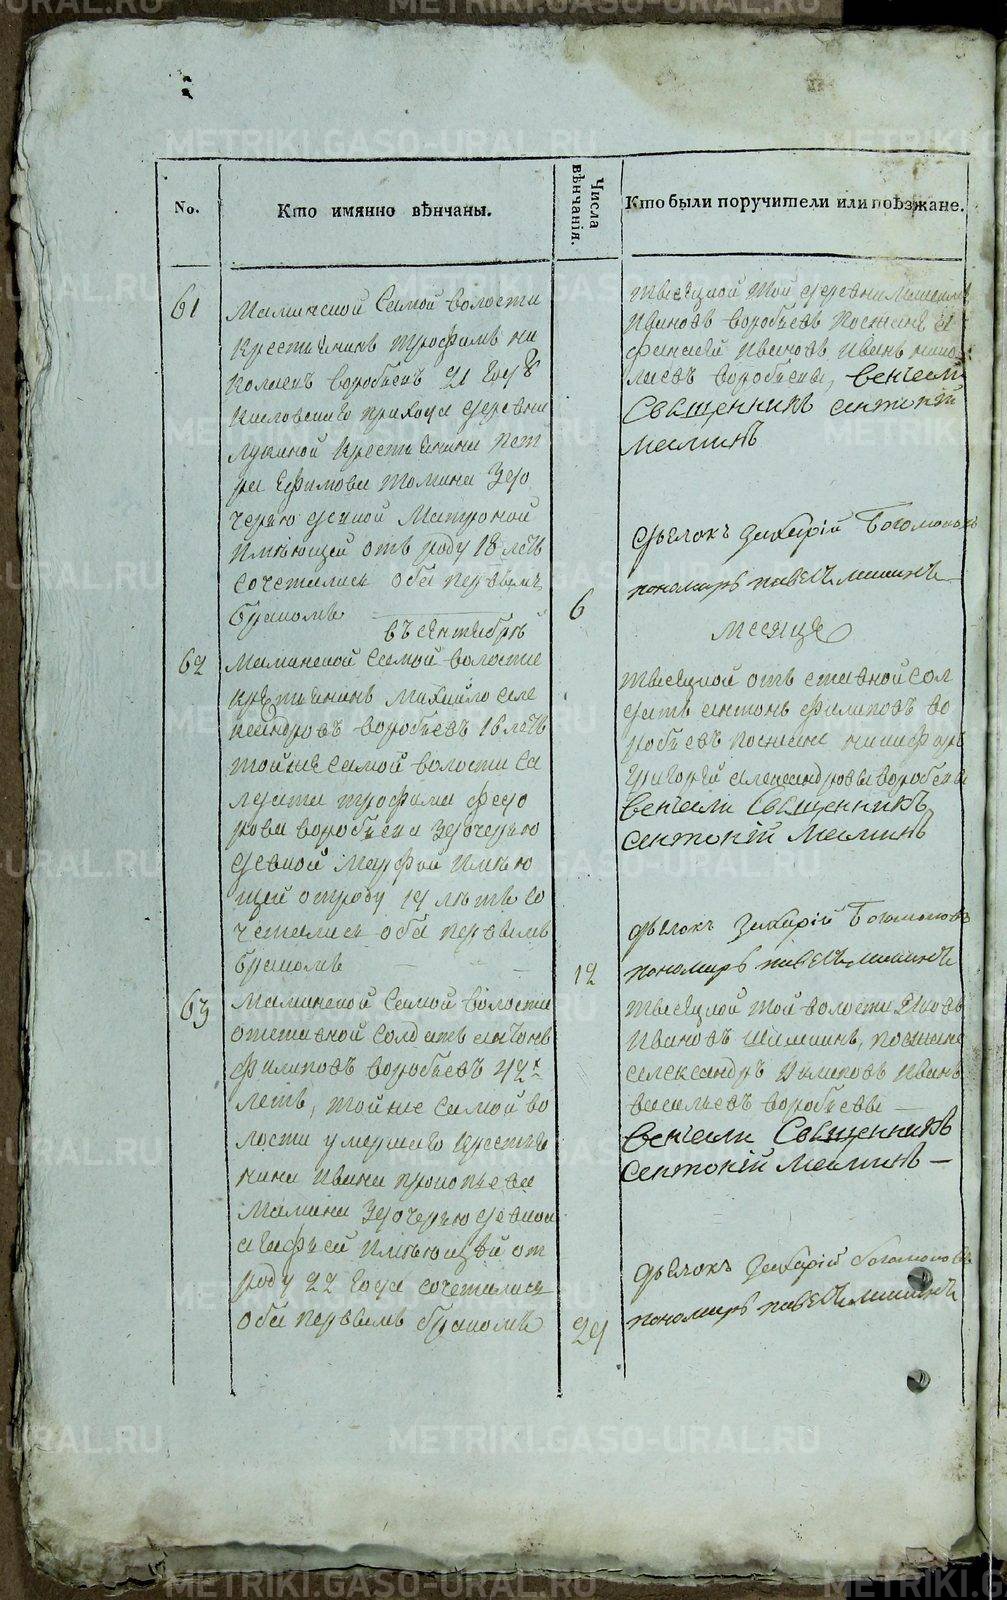 No.
Кто имянно вѣнчаны.
Числа вѣнчанія.
Кто были поручители или поѣзжане.
61
Маминской Самой волости
крестьянинъ Трофимъ Ни
колаевъ Воробьевъ 21 году
Кисловскаго прихода деревни
Лукиной крестьянина Пет
ра Ефимова Томина здо
черью девкой Матроной
имѣющей отъ роду 18 летъ
сочетались оба первымъ
бракомъ
6
тысяцкой той деревни
Ивановъ Воробьевъ поезжане
Ивановъ Иванъ Нико
лаевъ Воробьевы, венчали
Священникъ Антоній
Маминъ
дьячокъ Захарій Богомоловъ
пономарь Павелъ Маминъ
въ Сентябрѣ
месяцѣ
62
Маминской самой волости
крестьянинъ Михайло Але
ксандровъ Воробьевъ 18 летъ
той же самой волости са
лдата Трофима Федо
рова Воробьева здочерью
девкой Марфой имѣю
щей отроду 19 лѣтъ со
четались оба первымъ
бракомъ
12
тысяцкой отъ ставной сол
датъ Антонъ Филиповъ Во
робьевъ поезжане Никифоръ
Григорей Александровы Воробьевы
венчали Священникъ
Антоній Маминъ
дьячокъ Захарій Богомоловъ
пономарь Павелъ Маминъ
63
Маминской Самой волости
отставной солдатъ Антонъ
Филиповъ Воробьевъ 42х
летъ, той же самой во
лости умершаго крестья
нина Ивана Прокопьева
Мамина здочерью девкой
Агафьей имѣющей от
роду 22 года сочетались
оба первымъ бракомъ
24
тысяцкой той волости Яковъ
Ивановъ поезжане
Александръ Иванъ
Васильевъ Воробьевы
венчали Священникъ
Антоній Маминъ
дьячокъ Захарій Богомоловъ
пономарь Павелъ Маминъ
METRIKI.GASO-URAL.RU